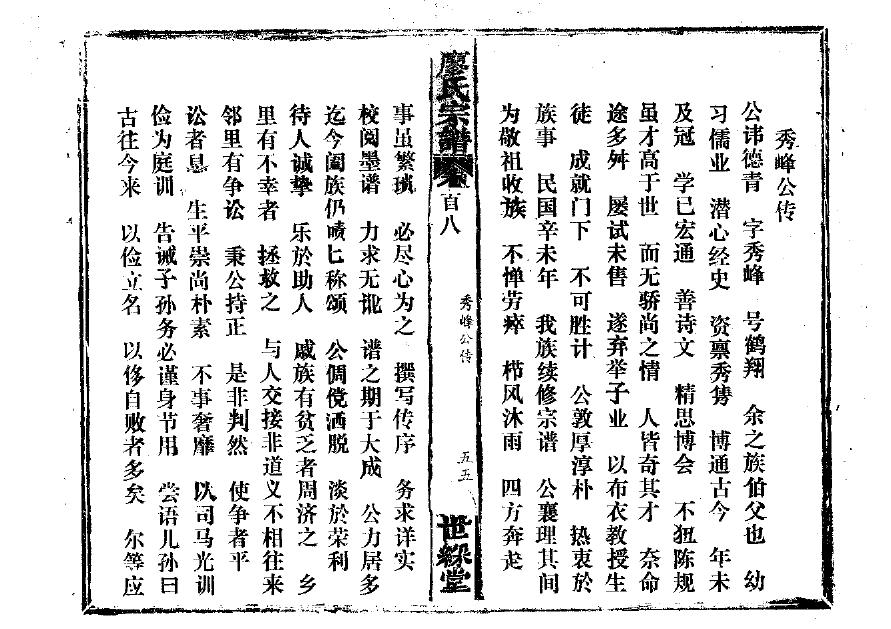 秀峰公传
公讳德青　字秀峰　号鹤翔　余之族伯父也　幼
习儒业　潜心经史　资禀秀雋　博通古今　年未
及冠　学已宏通　善诗文　精思博会　不狃陈规
虽才高于世　而无骄尚之情　人皆奇其才　奈命
途多舛　屡试未售　遂弃举子业　以布衣教授生
徒　成就门下　不可胜计　公敦厚淳朴　热衷於
族事　民国辛未年　我族续修宗谱　公襄理其间
为敬祖收族　不惮劳瘁　栉风沐雨　四方奔走
廖氏宗谱卷百八
秀峰公传
五五
世綵堂
事虽繁琐　必尽心为之　撰写传序　务求详实
校阅墨谱　力求无讹　谱之期于大成　公力居多
迄今阖族仍啧匕称颂　公倜傥洒脱　淡於荣利
待人诚挚　乐於助人　戚族有贫乏者周济之　乡
里有不幸者　拯救之　与人交接非道义不相往来
邻里有争讼　秉公持正　是非判然　使争者平
讼者息　生平崇尚朴素　不事奢靡　以司马光训
俭为庭训　告诫子孙务必谨身节用　尝语儿孙曰
古往今来　以俭立名　以侈自败者多矣　尔等应